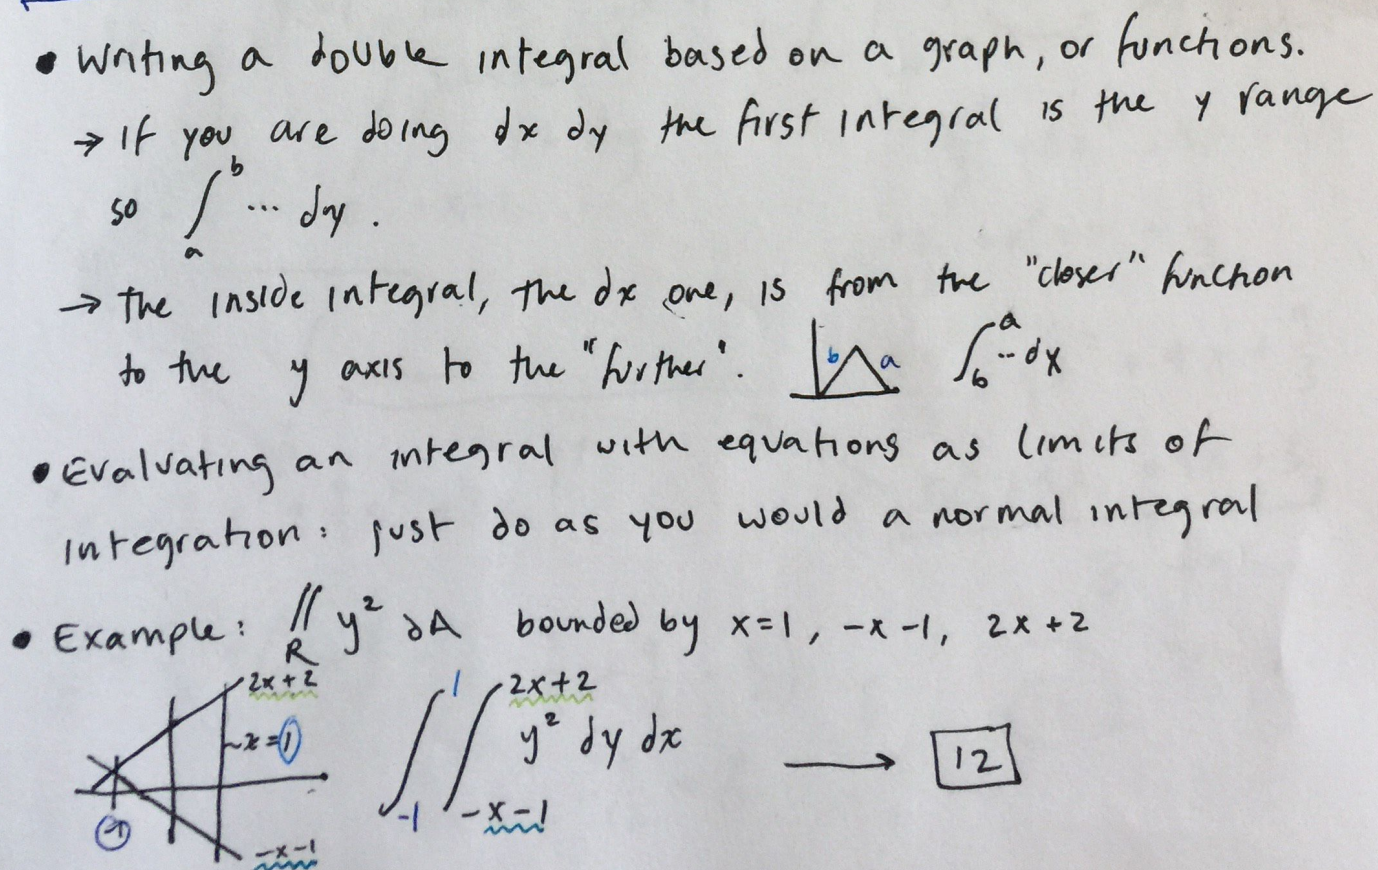 • Writing a double integral based on a graph, or functions.
→ If you are doing dx dy the first integral is the y range
so ∫_a^b ... dy.
→ The inside integral, the dx one, is from the "closer" function
to the y axis to the "further". b a ∫_b^a ... dx
• Evaluating an integral with equations as limits of
integration: just do as you would a normal integral
• Example: ∬_R y² dA bounded by x=1, -x-1, 2x+2
2x+2
x=1
-1
-x-1
∫_{-1}^{1} ∫_{-x-1}^{2x+2} y² dy dx → 12